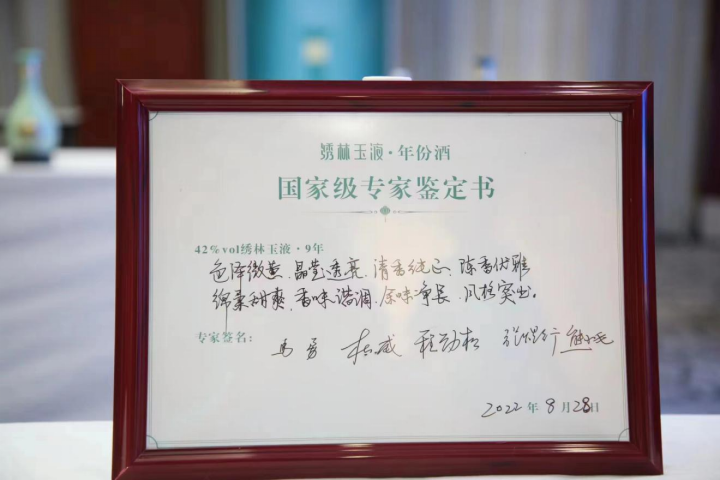 绣林玉液·年份酒
国家级专家鉴定书
42%vol绣林玉液·9年
色泽微黄、晶莹透亮、清香纯正、陈香优雅
绵柔甜爽、香味谐调、余味净长、风格突出。
专家签名: 马勇 程劲松
2022年8月28日